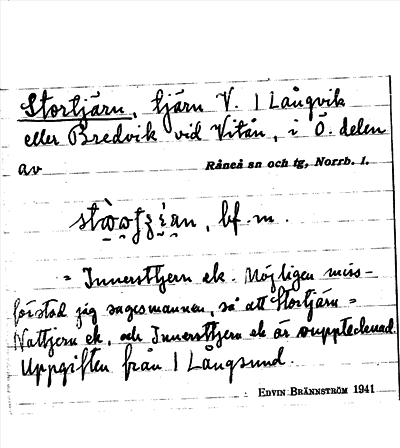 Stortjärn, tjärn V. I Långvik
eller Bredvik vid Vitån, i Ö. delen
av Råneå sn och tg, Norrb. l.
bf. m.
= Innersttjern ek. Möjligen miss-
förstod jag sagesmannen, så att Stortjärn =
Nattjern ek, och Innersttjern ek är oupptecknad.
Uppgiften från I Långsund.
EDVIN BRÄNNSTRÖM 1941